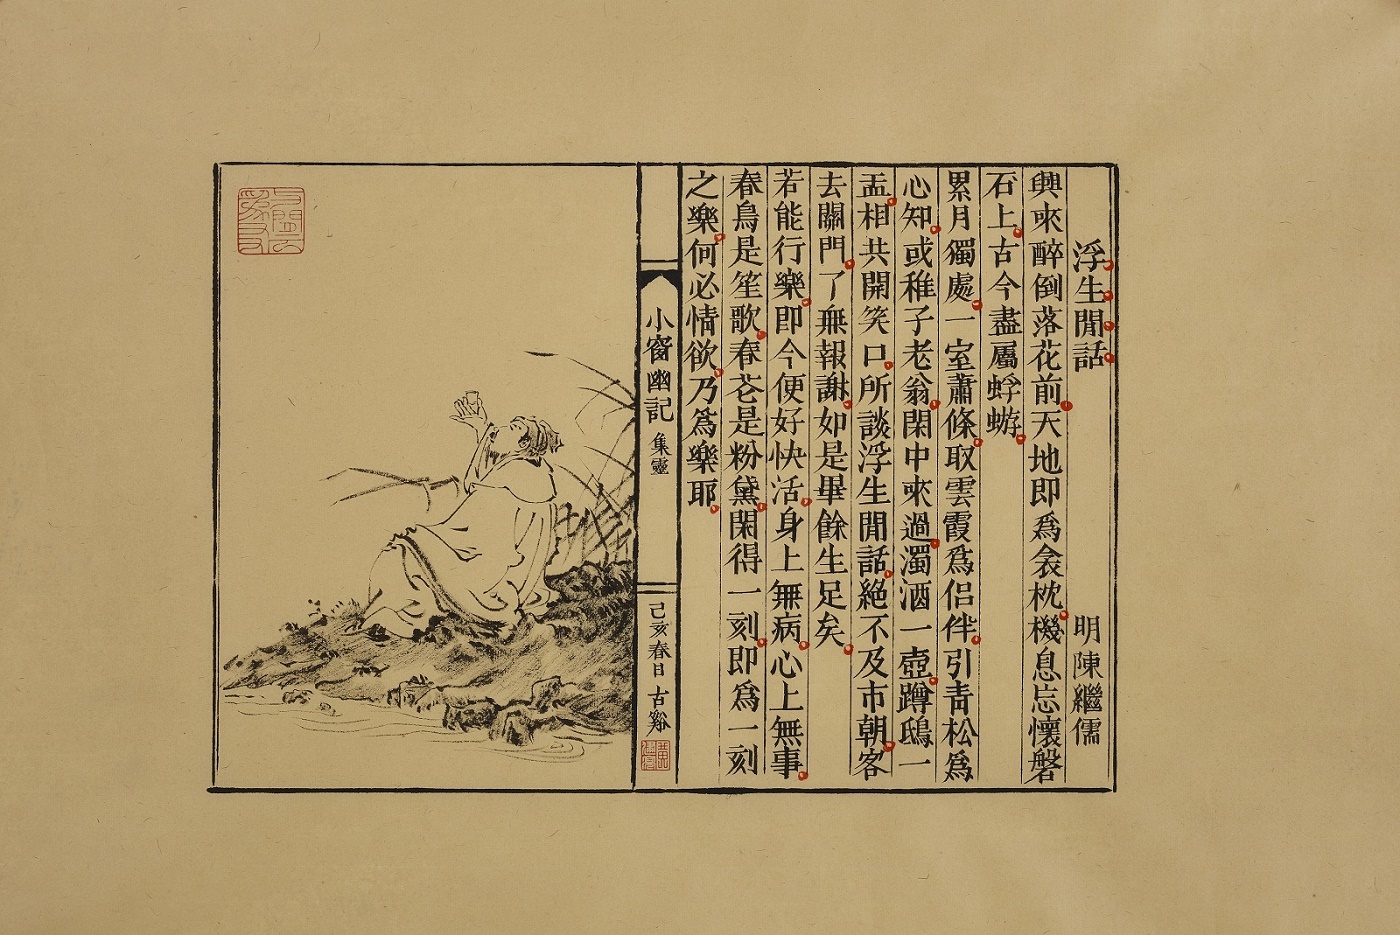 浮生閒話 明 陳繼儒
興來醉倒落花前天地即爲衾枕機息忘懷磐
石上古今盡屬蜉蝣
累月獨處一室蕭條取雲霞爲侶伴引青松爲
心知或稚子老翁閑中來過濁酒一壺蹲鴟一
盂相共開笑口所談浮生閒話絕不及市朝客
去關門了無報謝如是畢餘生足矣
若能行樂即今便好快活身上無病心上無事
春鳥是笙歌春花是粉黛閑得一刻即爲一刻
之樂何必情欲乃爲樂耶
小窗幽記 集靈
己亥春日 古谿